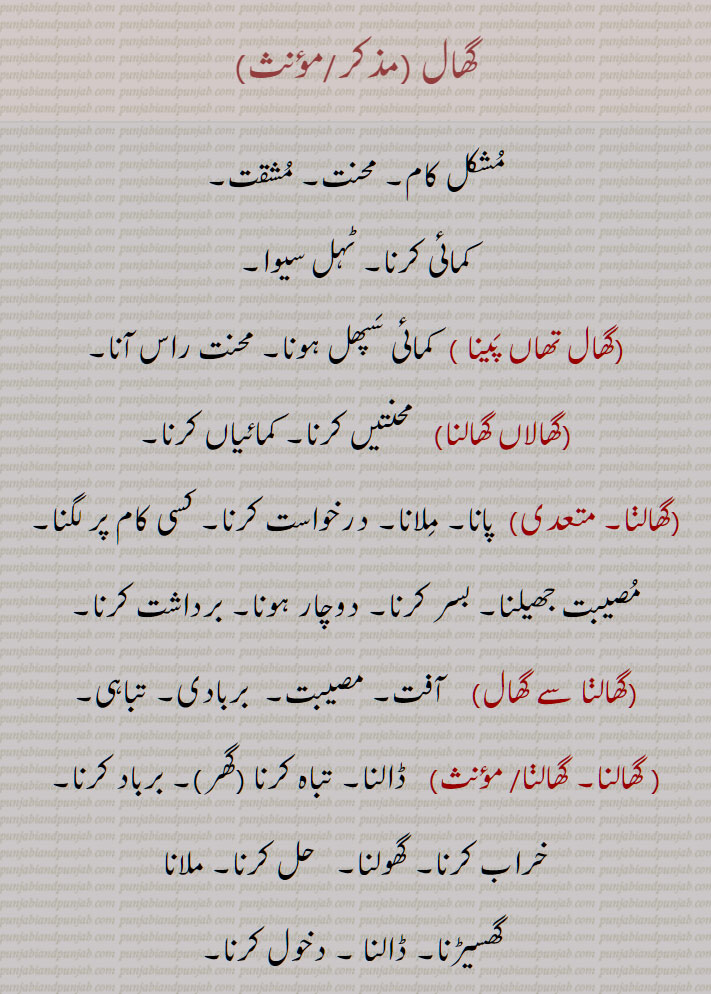 گھال (مذکر/مؤنث)
مُشکل کام۔ محنت۔ مُشقت۔
کمائی کرنا۔ ٹہل سیوا۔
(گھال تھاں پَینا ) کمائی سَپھل ہونا۔ محنت راس آنا۔
(گھالاں گھالنا) محنتیں کرنا۔ کمائیاں کرنا۔
(گھالݨا۔ متعدی) پانا۔ مِلانا۔ درخواست کرنا۔ کسی کام پر لگنا۔
مُصیبت جھیلنا۔ بسر کرنا۔ دوچار ہونا۔ برداشت کرنا۔
(گھالݨا سے گھال) آفت۔ مصیبت۔ بربادی۔ تباہی۔
( گھالنا۔ گھالݨا/ مؤنث) ڈالنا۔ تباہ کرنا (گھر)۔ برباد کرنا۔
خراب کرنا۔ گھولنا۔ حل کرنا۔ ملانا
گھسیڑنا۔ ڈالنا ۔ دخول کرنا۔